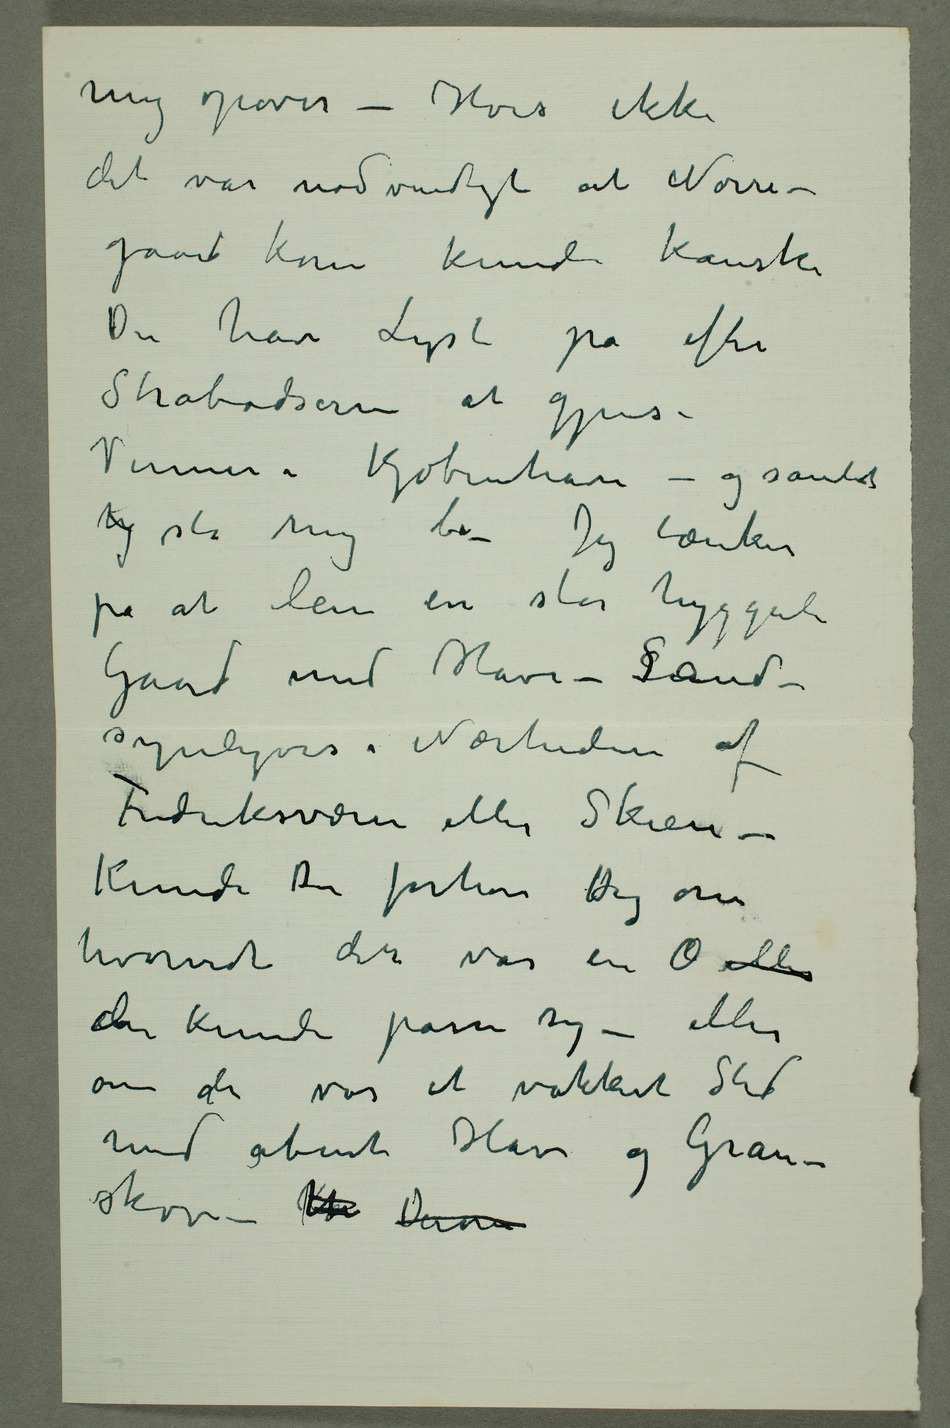 mig opover – Hvis ikke
det var nødvendigt at Nørre-
gaard kom kunde kanske
Du have Lyst på efter
Strabadserne at gjense
Venner i Kjøbenhavn – og samtidt
hyste mig bo – Jeg tænker
på at leie en stor hyggeli
Gaard med Have – Sand-
synligvis i Nærheden af
Fredriksværn eller Skien –
Kunde Du forhøre Dig om
hvorvidt der var en Ø eller
der kunde passe sig – eller
om der var et vakkert Sted
med åbent Hav og Gran-
skov – Derom